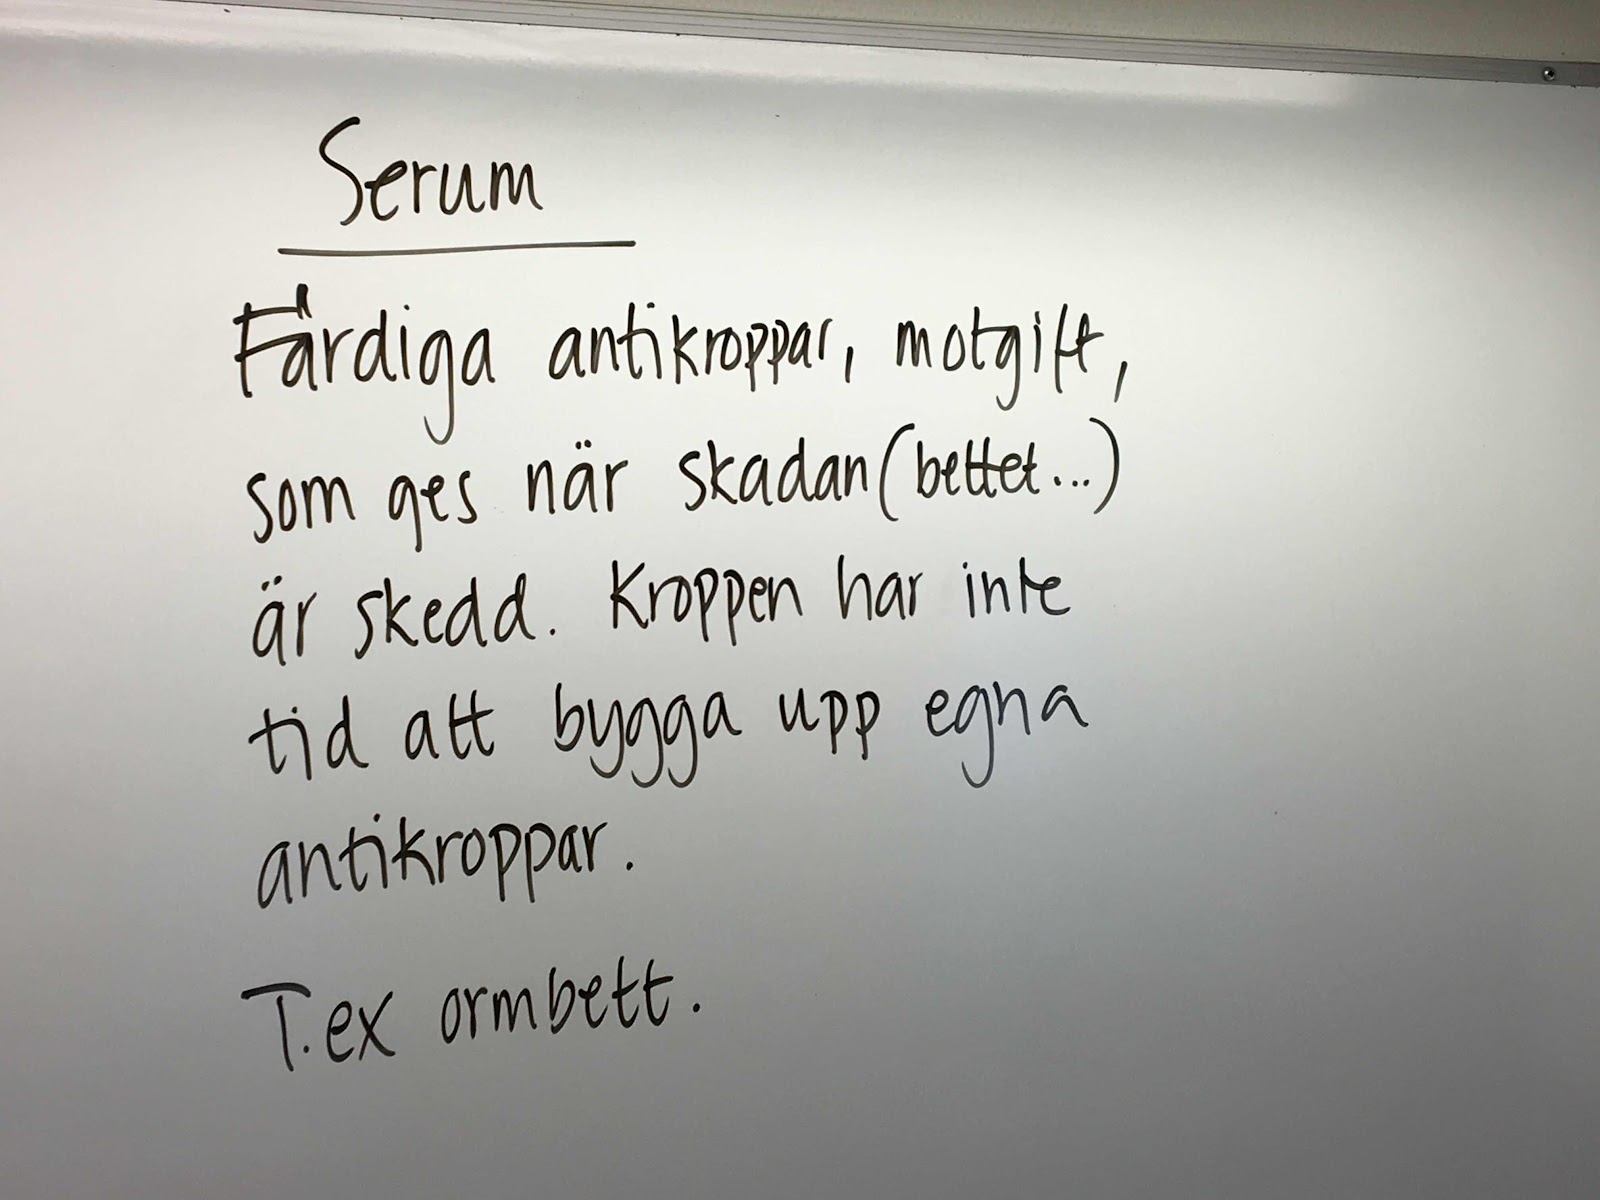 Serum
Färdiga antikroppar, motgift,
som ges när skadan (bettet...)
är skedd. Kroppen har inte
tid att bygga upp egna
antikroppar.
T.ex ormbett.